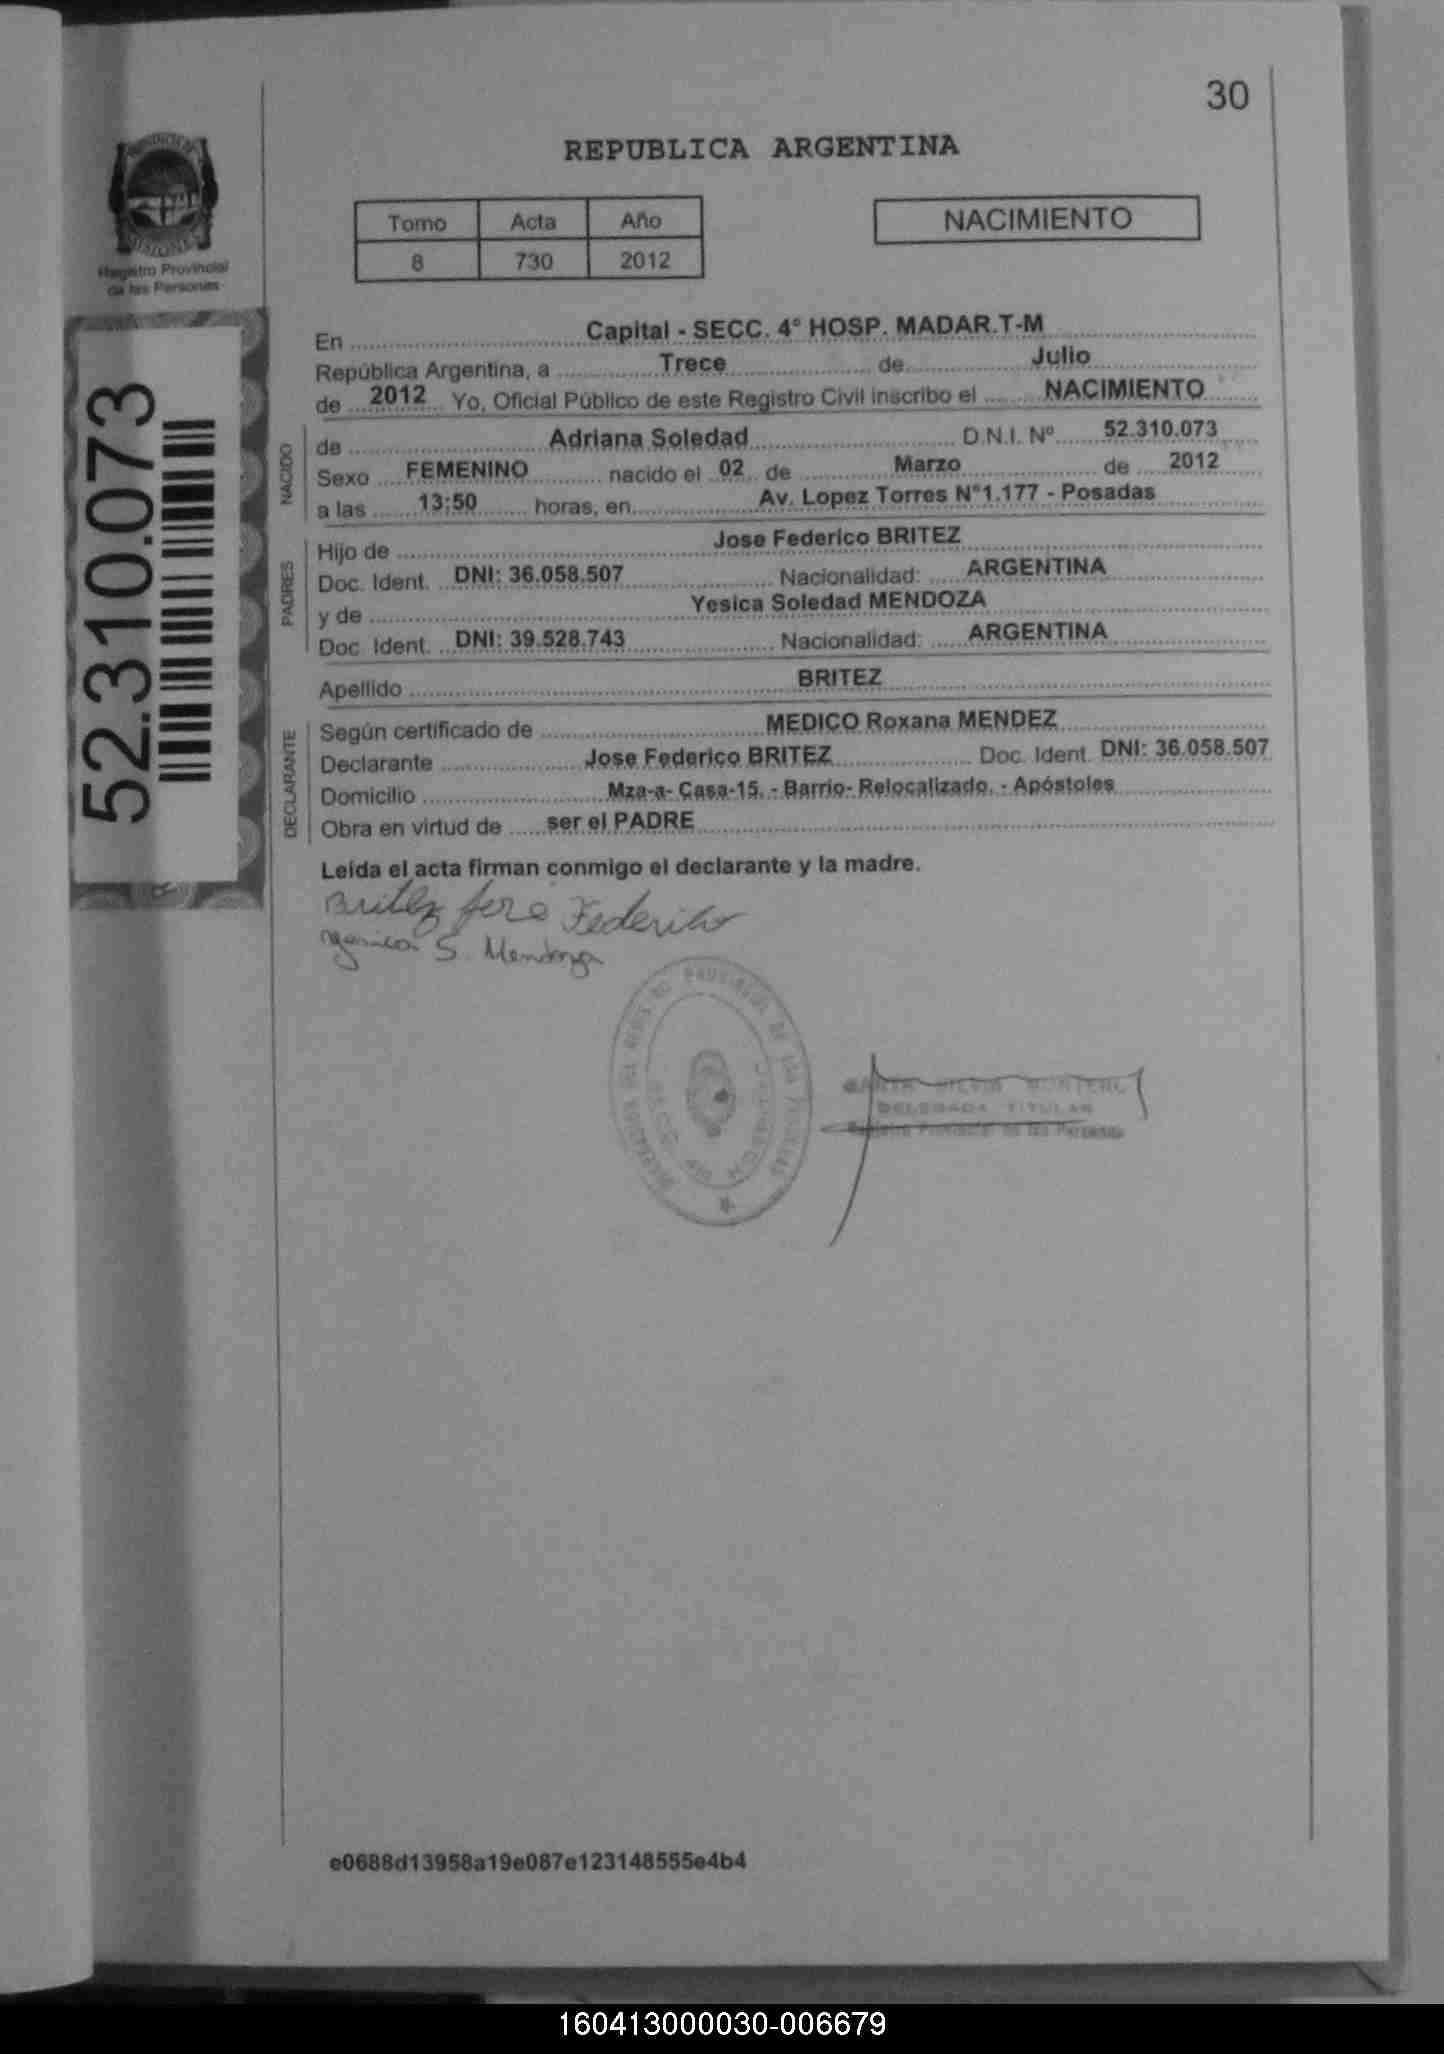 30
REPUBLICA ARGENTINA
PROVINCIA DE
MISIONES
Registro Provincial
de las Personas
Tomo Acta Año
8 730 2012
NACIMIENTO
52.310.073
En Capital - SECC. 4° HOSP. MADAR.T-M
República Argentina, a Trece de Julio
de 2012 Yo, Oficial Público de este Registro Civil inscribo el NACIMIENTO
NACIDO
de Adriana Soledad D.N.I. Nº 52.310.073
Sexo FEMENINO nacido el 02 de Marzo de 2012
a las 13:50 horas, en Av. Lopez Torres N°1.177 - Posadas
PADRES
Hijo de Jose Federico BRITEZ
Doc. Ident. DNI: 36.058.507 Nacionalidad: ARGENTINA
y de Yesica Soledad MENDOZA
Doc. Ident. DNI: 39.528.743 Nacionalidad: ARGENTINA
Apellido BRITEZ
DECLARANTE
Según certificado de MEDICO Roxana MENDEZ
Declarante Jose Federico BRITEZ Doc. Ident. DNI: 36.058.507
Domicilio Mza-a- Casa-15. - Barrio- Relocalizado. - Apóstoles
Obra en virtud de ser el PADRE
Leída el acta firman conmigo el declarante y la madre.
Britez Jose Federico
Yesica S. Mendoza
DELEGADA TITULAR
Registro Provincial de las Personas
e0688d13958a19e087e123148555e4b4
160413000030-006679